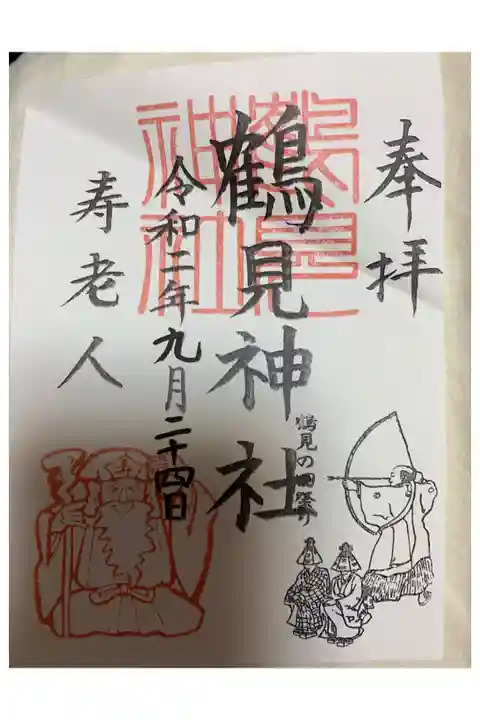 奉拝
鶴見神社
鶴見の田祭り
令和二年九月二十四日
寿老人
鶴見
神社